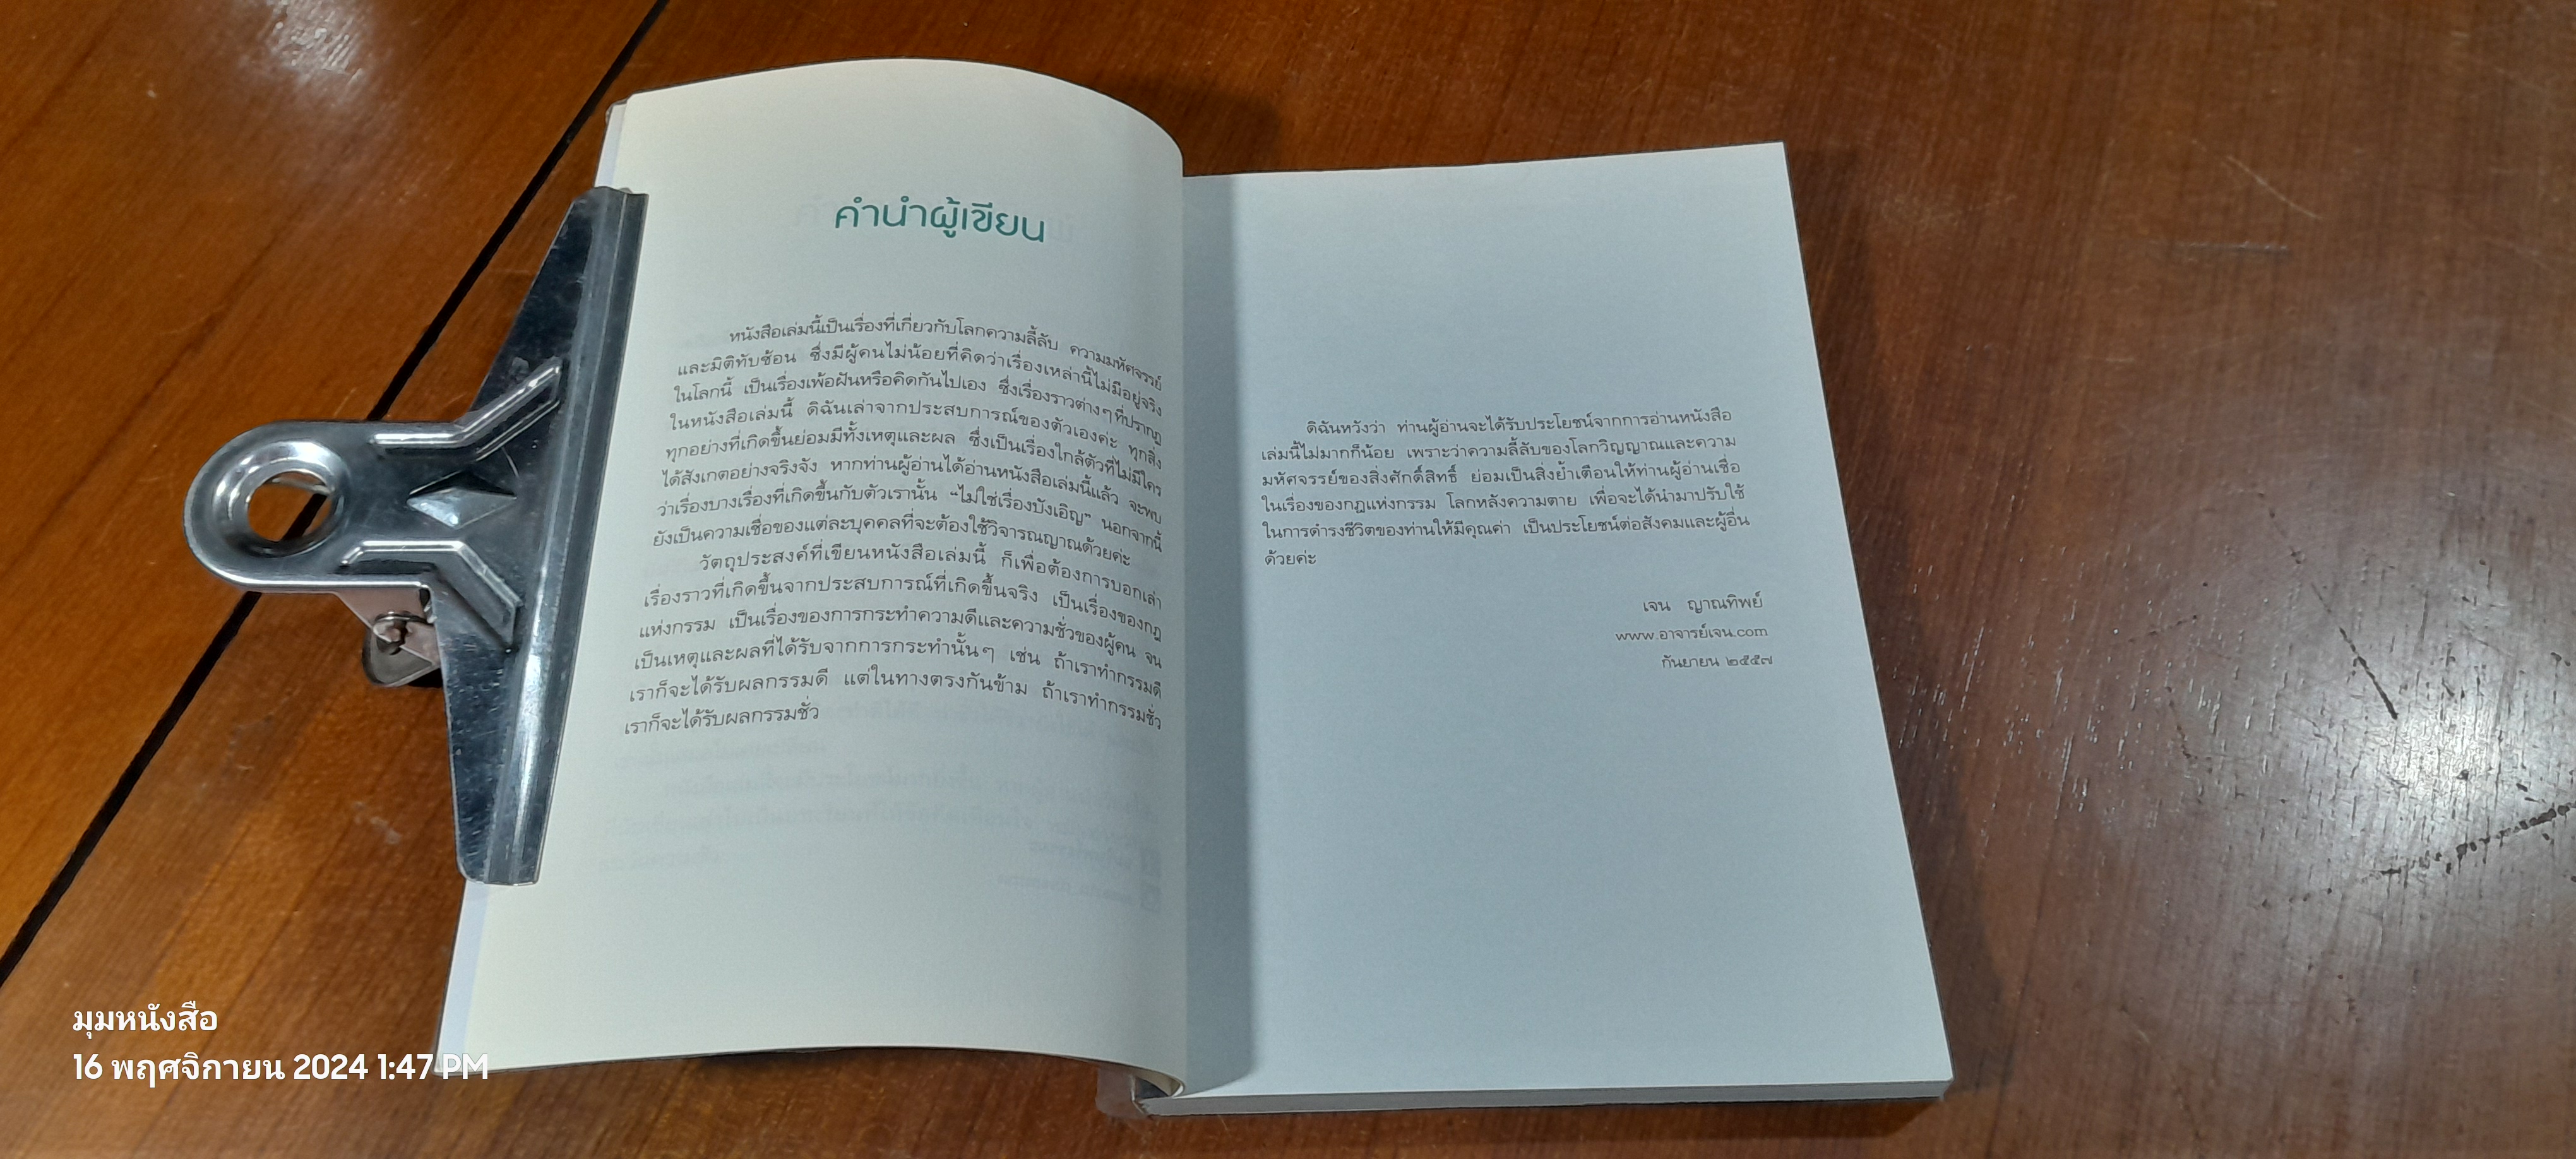 คำนำผู้เขียน
หนังสือเล่มนี้เป็นเรื่องที่เกี่ยวกับโลกความลี้ลับ ความมหัศจรรย์
และมิติทับซ้อน ซึ่งมีผู้คนไม่น้อยที่คิดว่าเรื่องเหล่านี้ไม่มีอยู่จริง
ในโลกนี้ เป็นเรื่องเพ้อฝันหรือคิดกันไปเอง ซึ่งเรื่องราวต่างๆ ที่ปรากฏ
ในหนังสือเล่มนี้ ดิฉันเล่าจากประสบการณ์ของตัวเองค่ะ ทุกสิ่ง
ทุกอย่างที่เกิดขึ้นย่อมมีทั้งเหตุและผล ซึ่งเป็นเรื่องใกล้ตัวที่ไม่มีใคร
ได้สังเกตอย่างจริงจัง หากท่านผู้อ่านได้อ่านหนังสือเล่มนี้แล้ว จะพบ
ว่าเรื่องบางเรื่องที่เกิดขึ้นกับตัวเรานั้น “ไม่ใช่เรื่องบังเอิญ” นอกจากนี้
ยังเป็นความเชื่อของแต่ละบุคคลที่จะต้องใช้วิจารณญาณด้วยค่ะ
วัตถุประสงค์ที่เขียนหนังสือเล่มนี้ ก็เพื่อต้องการบอกเล่า
เรื่องราวที่เกิดขึ้นจากประสบการณ์ที่เกิดขึ้นจริง เป็นเรื่องของกฎ
แห่งกรรม เป็นเรื่องของการกระทำความดีและความชั่วของผู้คน จน
เป็นเหตุและผลที่ได้รับจากการกระทำนั้นๆ เช่น ถ้าเราทำกรรมดี
เราก็จะได้รับผลกรรมดี แต่ในทางตรงกันข้าม ถ้าเราทำกรรมชั่ว
เราก็จะได้รับผลกรรมชั่ว
ดิฉันหวังว่า ท่านผู้อ่านจะได้รับประโยชน์จากการอ่านหนังสือ
เล่มนี้ไม่มากก็น้อย เพราะว่าความลี้ลับของโลกวิญญาณและความ
มหัศจรรย์ของสิ่งศักดิ์สิทธิ์ ย่อมเป็นสิ่งย้ำเตือนให้ท่านผู้อ่านเชื่อ
ในเรื่องของกฎแห่งกรรม โลกหลังความตาย เพื่อจะได้นำมาปรับใช้
ในการดำรงชีวิตของท่านให้มีคุณค่า เป็นประโยชน์ต่อสังคมและผู้อื่น
ด้วยค่ะ
เจน ญาณทิพย์
www.อาจารย์เจน.com
กันยายน ๒๕๕๗
มุมหนังสือ
16 พฤศจิกายน 2024 1:47 PM